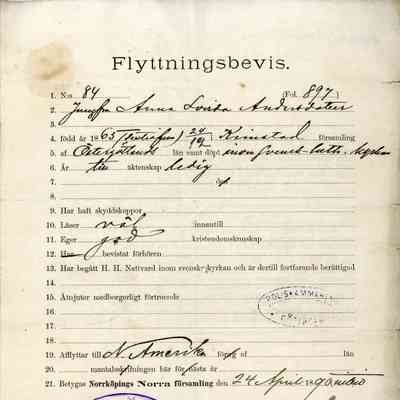 Flyttningsbevis.
1. N:o 84 (Fol. 897)
2. Jungfru Anna Lovisa Andersdotter
3.
4. född år 1863 (sextiotre) 24/12 Kimstad församling
5. af Östergötlands län samt döpt inom Svensk-luth. Kyrkan
6. Är till äktenskap ledig
7.
8.
9. Har haft skyddskoppor
10. Läser väl innantill
11. Eger god kristendomskunskap
12. Har bevistat förhören
13. Har begått H. H. Nattvard inom svensk-kyrkan och är dertill fortfarande berättigad
14.
15. Åtnjuter medborgerligt förtroende
16.
17.
18.
POLISKAMMAREN
19. Afflyttar till N. Amerika förseg af län
20. mantalsskrifningen här för nästa år
21. Betygas Norrköpings Norra församling den 24 April 1890